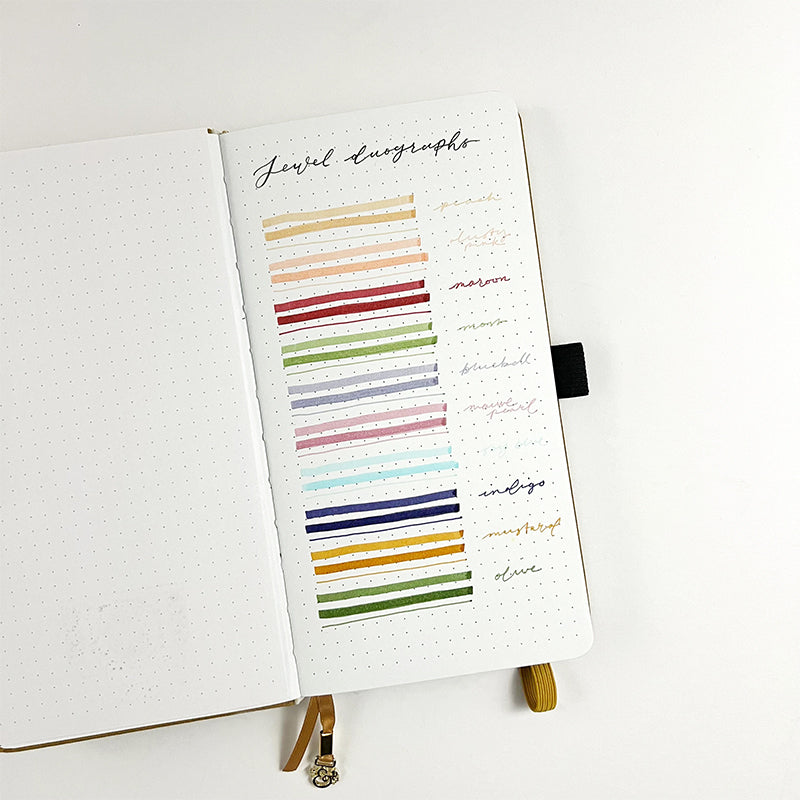 Jewel duographs
peach
dusty
pink
maroon
moss
bluebell
mauve
pearl
indigo
mustard
olive